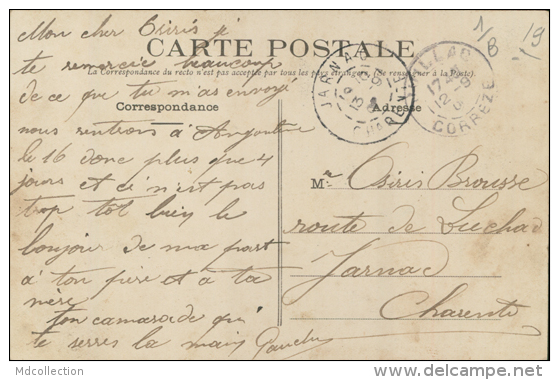 CARTE POSTALE
(La Correspondance du recto n'est pas acceptée par tous les pays étrangers. (Se renseigner à la Poste).
Correspondance
Adresse
1/8
19
JARNAC
CHARENTE
CORRÈZE
Mon cher Osiris je
te remercie beaucoup
de ce que tu m'as envoyé
nous rentrons à Angoulême
le 16 donc plus que 4
jours et ce n'est pas
trop tôt bien le
bonjour de ma part
à ton père et à ta
mère
ton camarade qui
te serres la main
Mr Osiris Brousse
route de Luchac
Jarnac
Charente
Mdcollection
delcampe.net